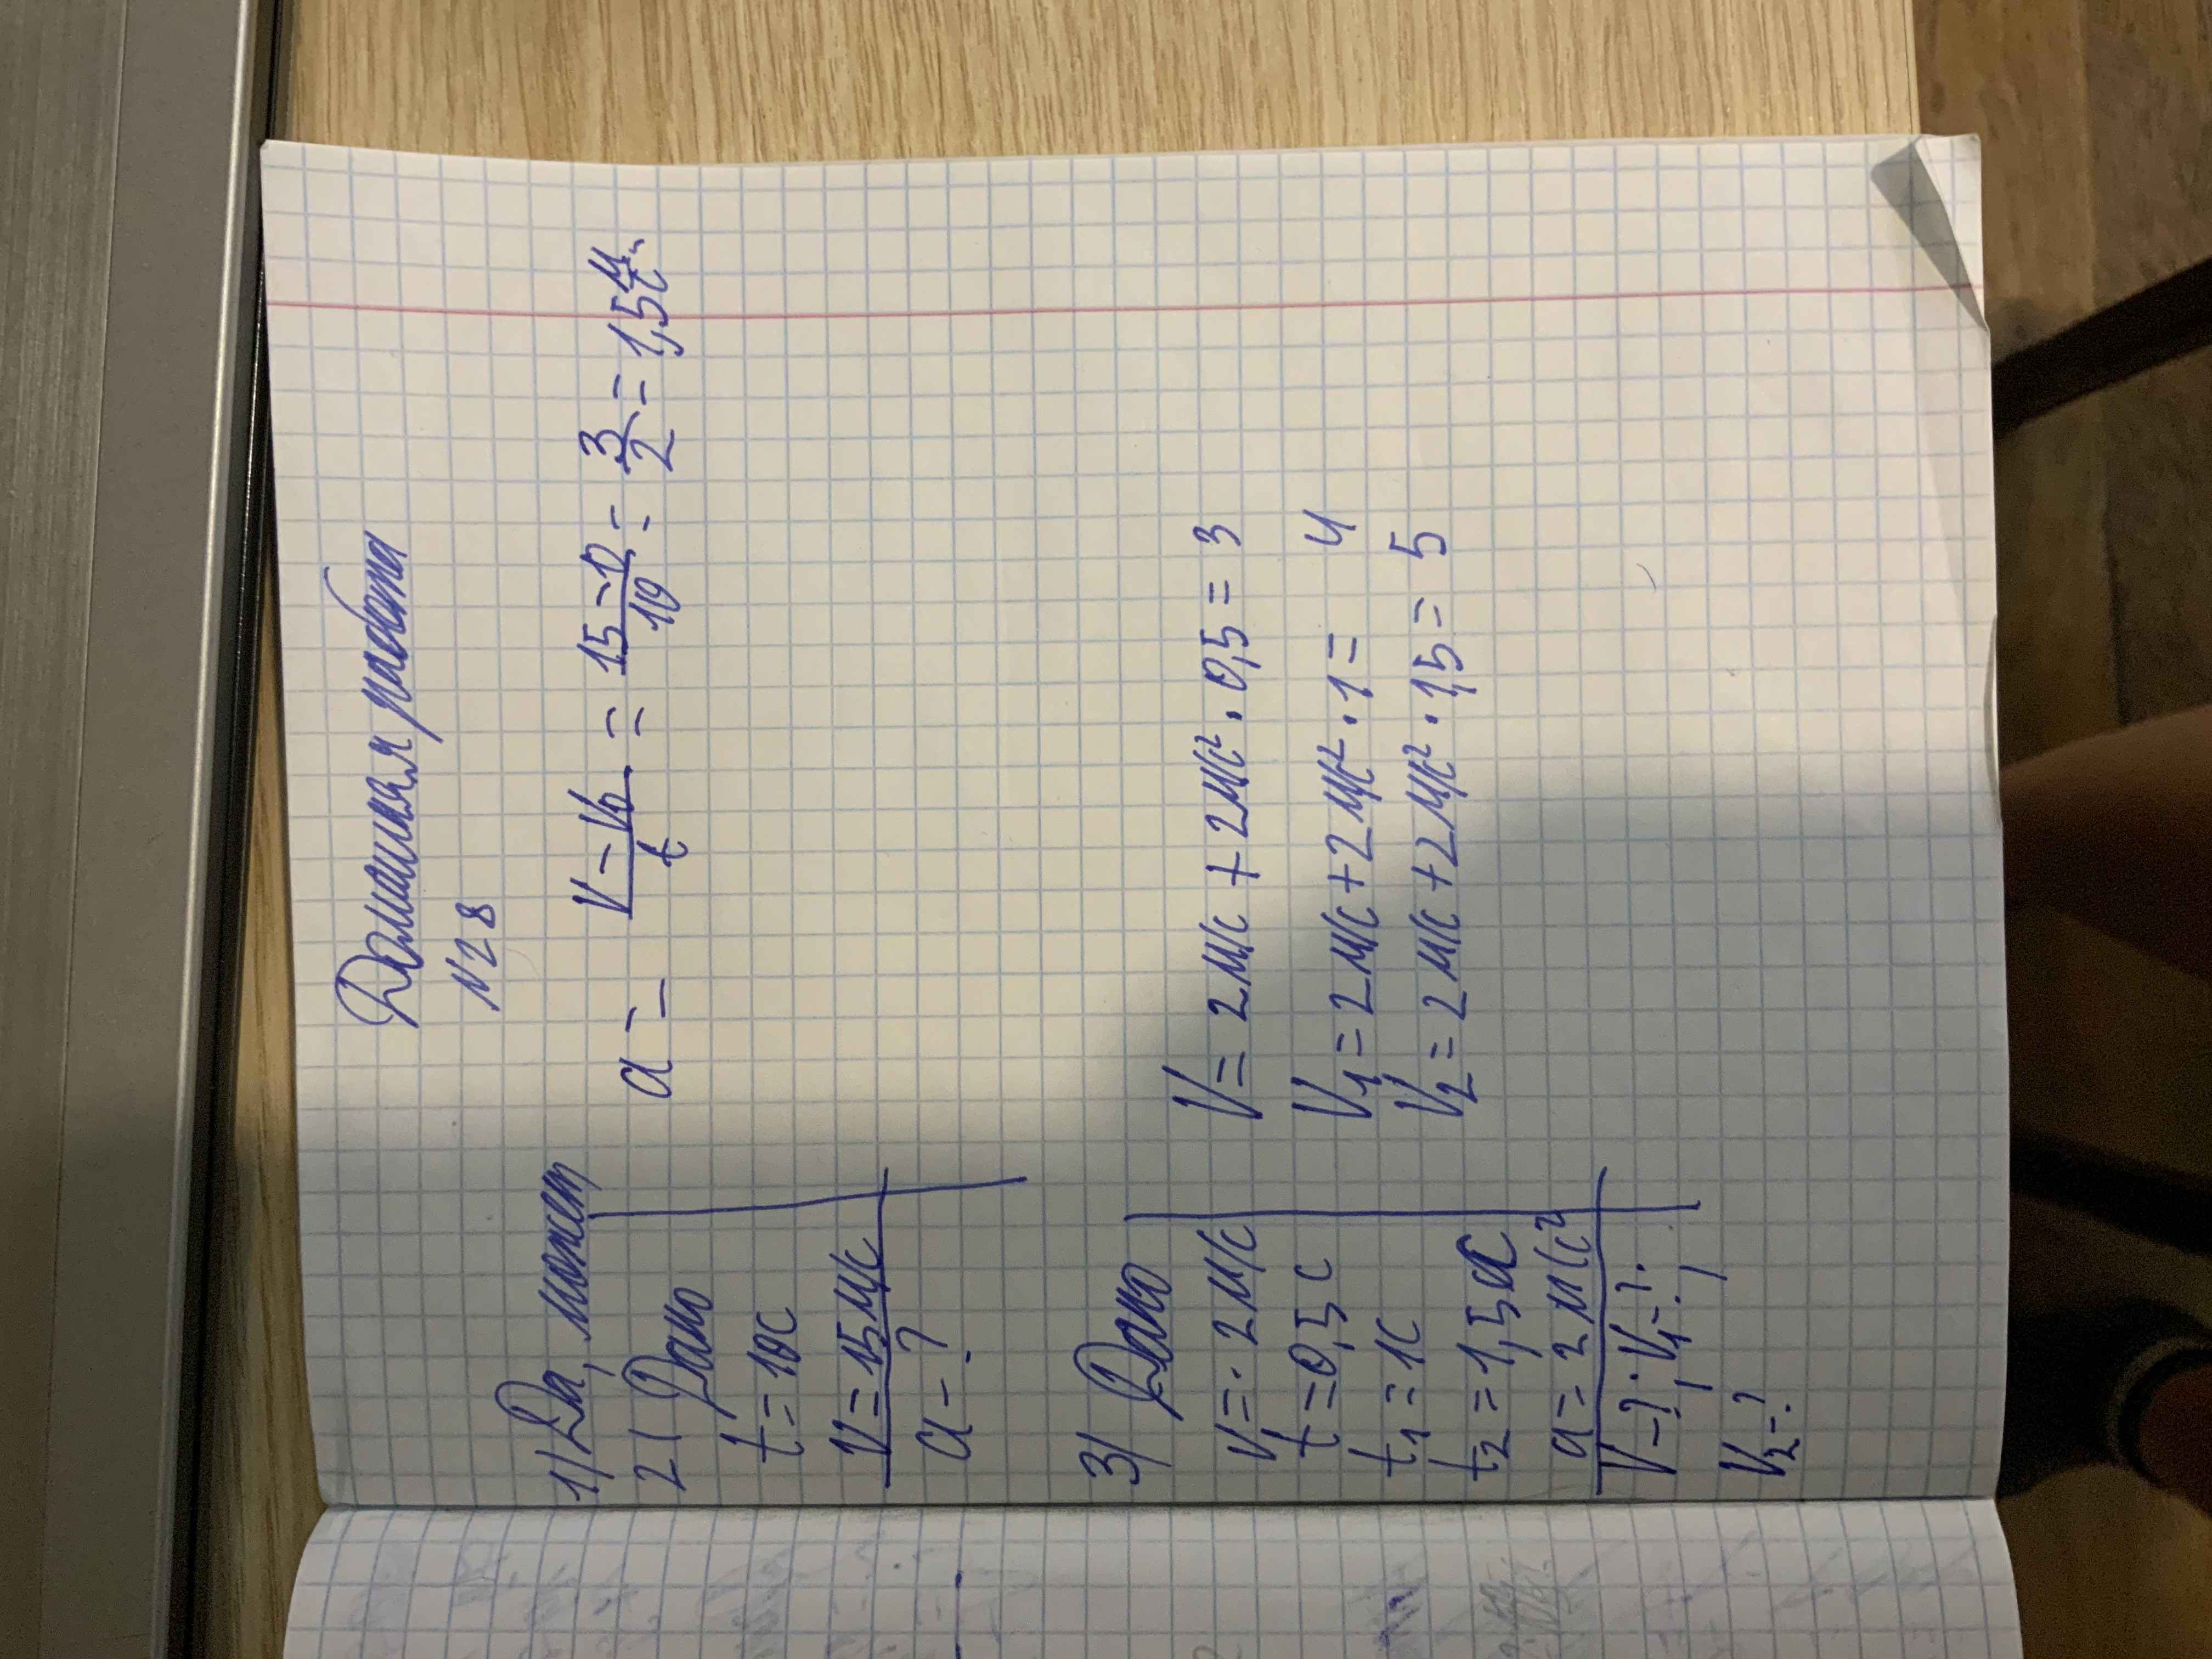 Домашняя работа
№28
1) Да, может
2) Дано
t = 10с
V = 15 м/с
a - ?
a = V - V₀ / t = 15 - 12 / 10 = 3/2 = 1,5 м/с
3) Дано
V = 2 м/с
t = 0,5 с
t₁ = 1с
t₂ = 1,5 с
a = 2 м/с²
V - ?, V₁ - ?,
V₂ - ?
V = 2 м/с + 2 м/с² · 0,5 = 3
V₁ = 2 м/с + 2 м/с² · 1 = 4
V₂ = 2 м/с + 2 м/с² · 1,5 = 5